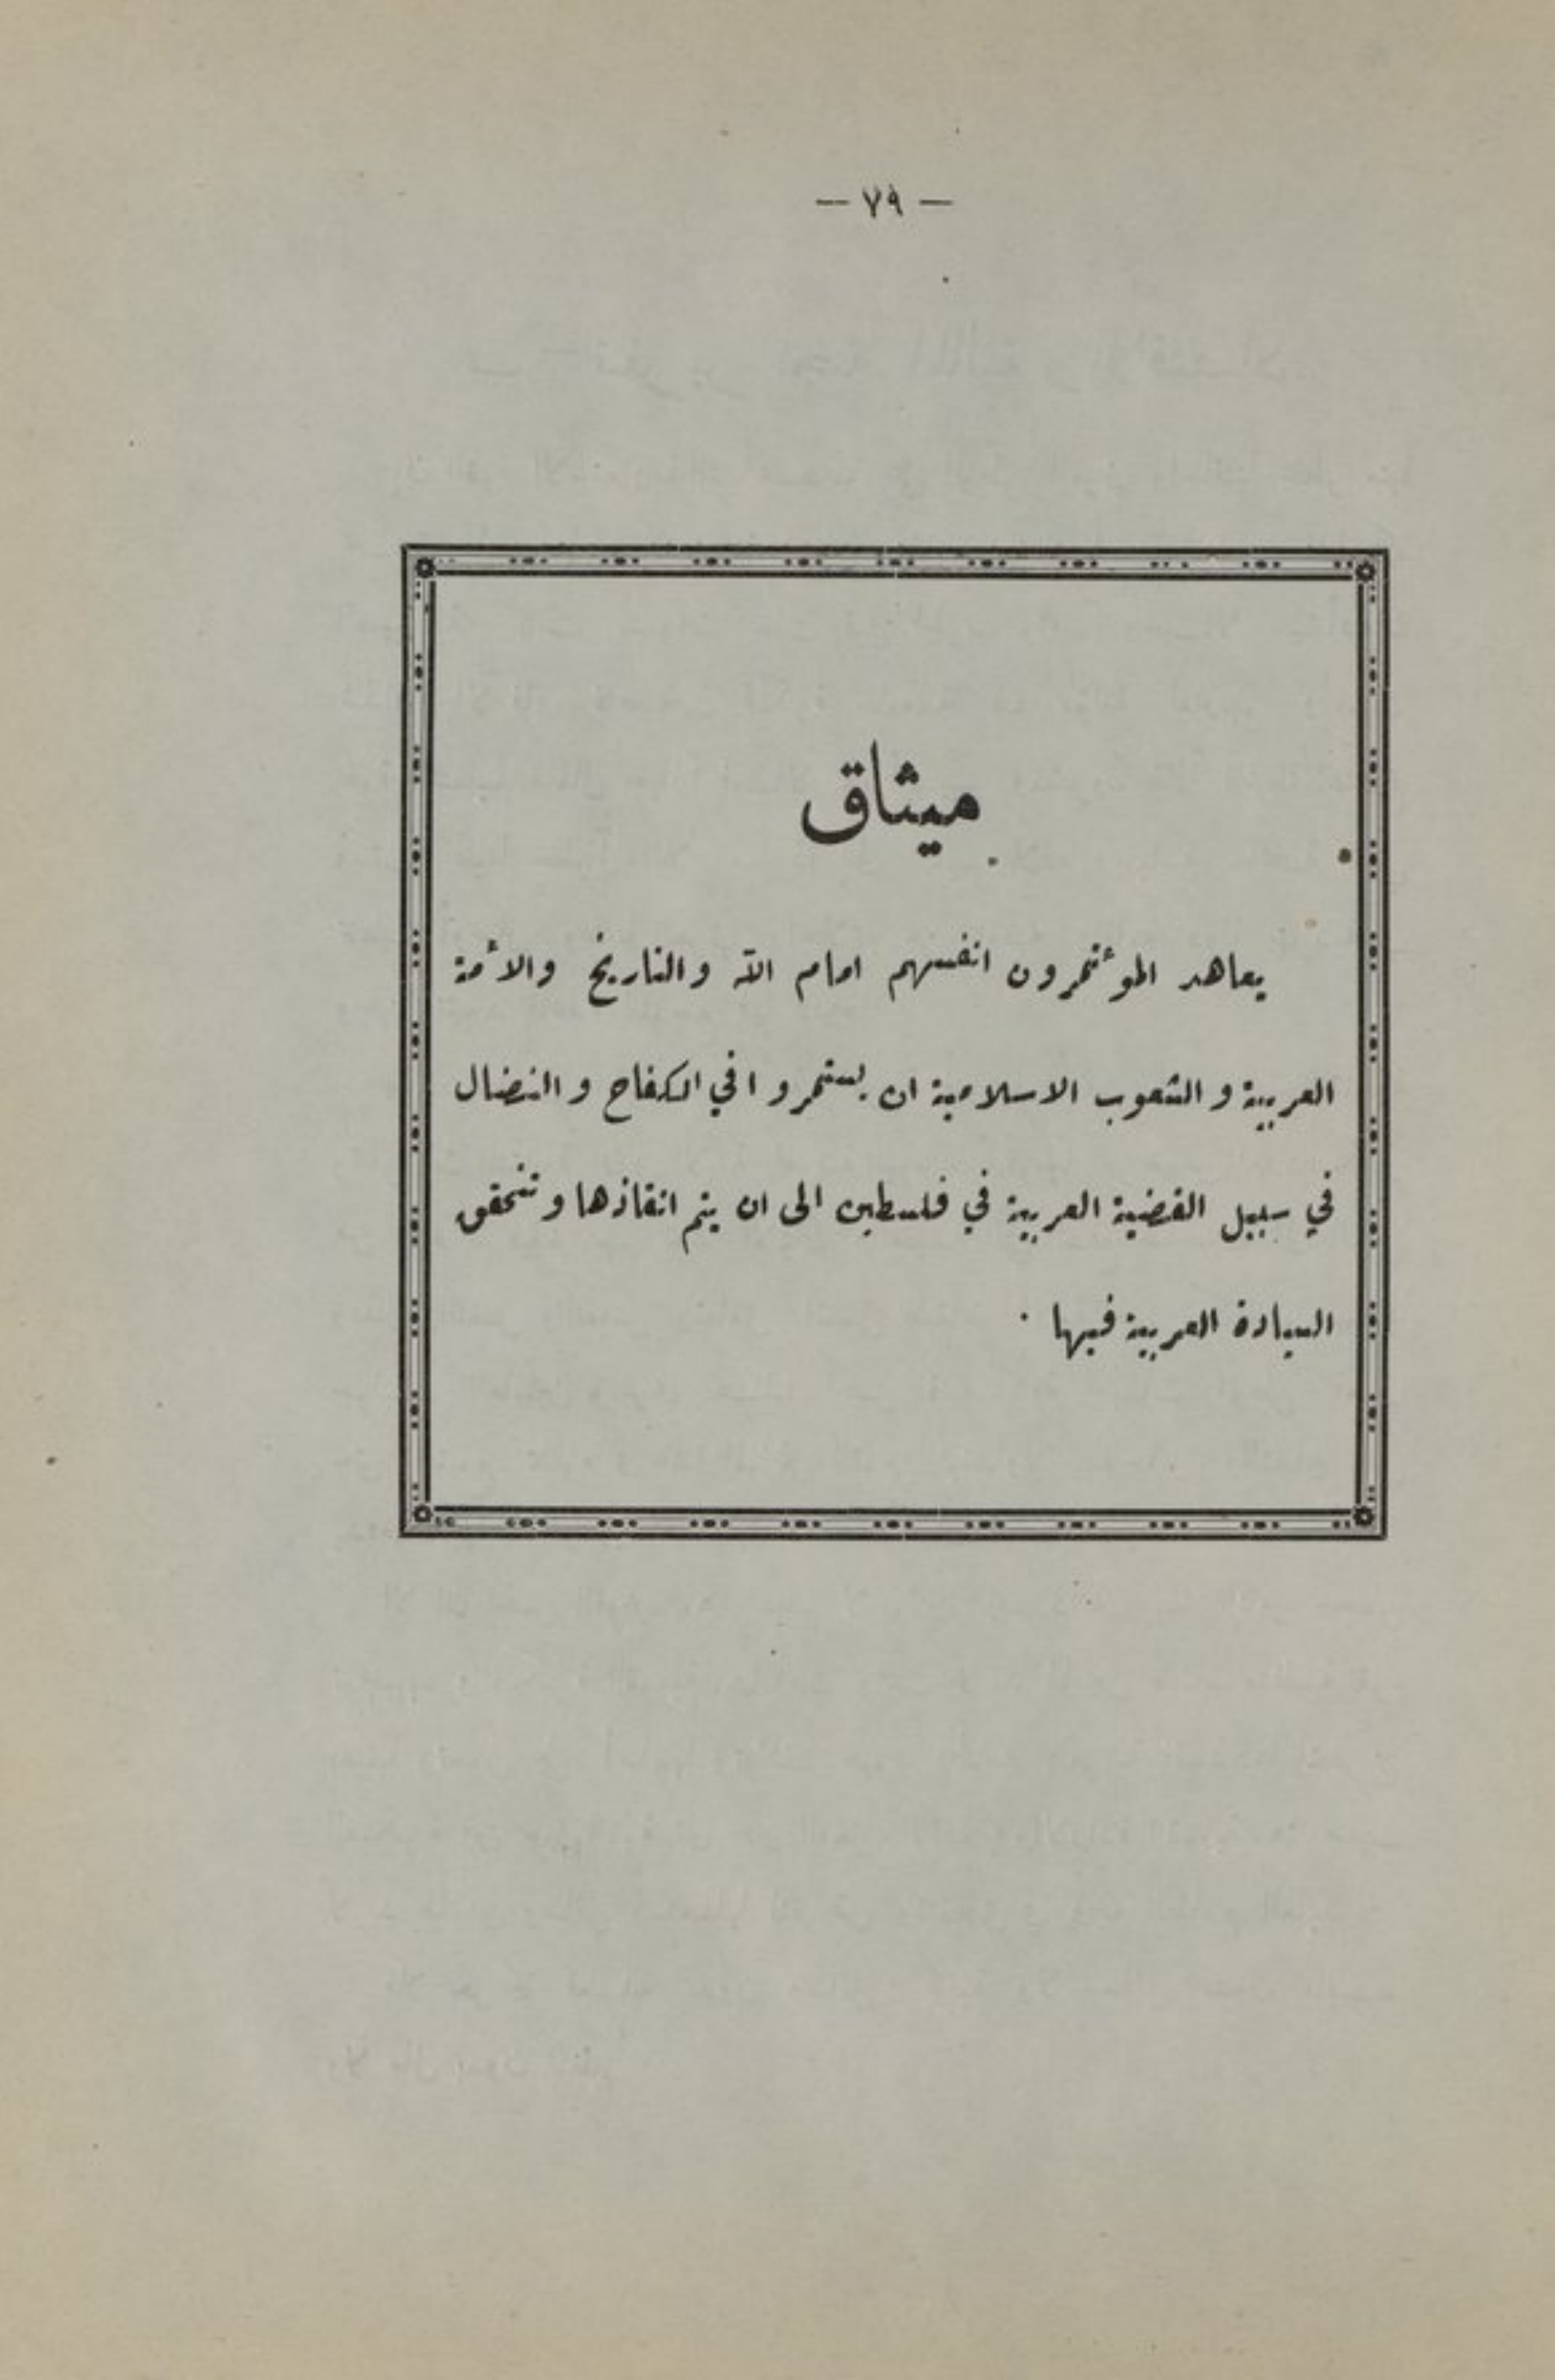 — ٧٩ —
ميثاق
يعاهد الموءتمرون انفسهم امام الله والتاريخ والأمة
العربية والشعوب الاسلامية ان يستمروا في الكفاح والنضال
في سبيل القضية العربية في فلسطين الى ان يتم انقاذها وتتحقق
السيادة العربية فيها ٠